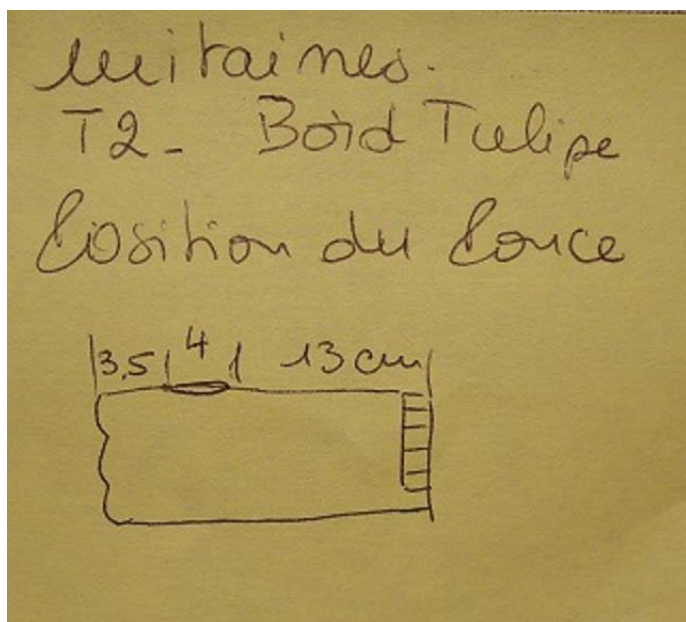 mitaines.
T2- Bord Tulipe
Position du Pouce
3,5 4 13 cm